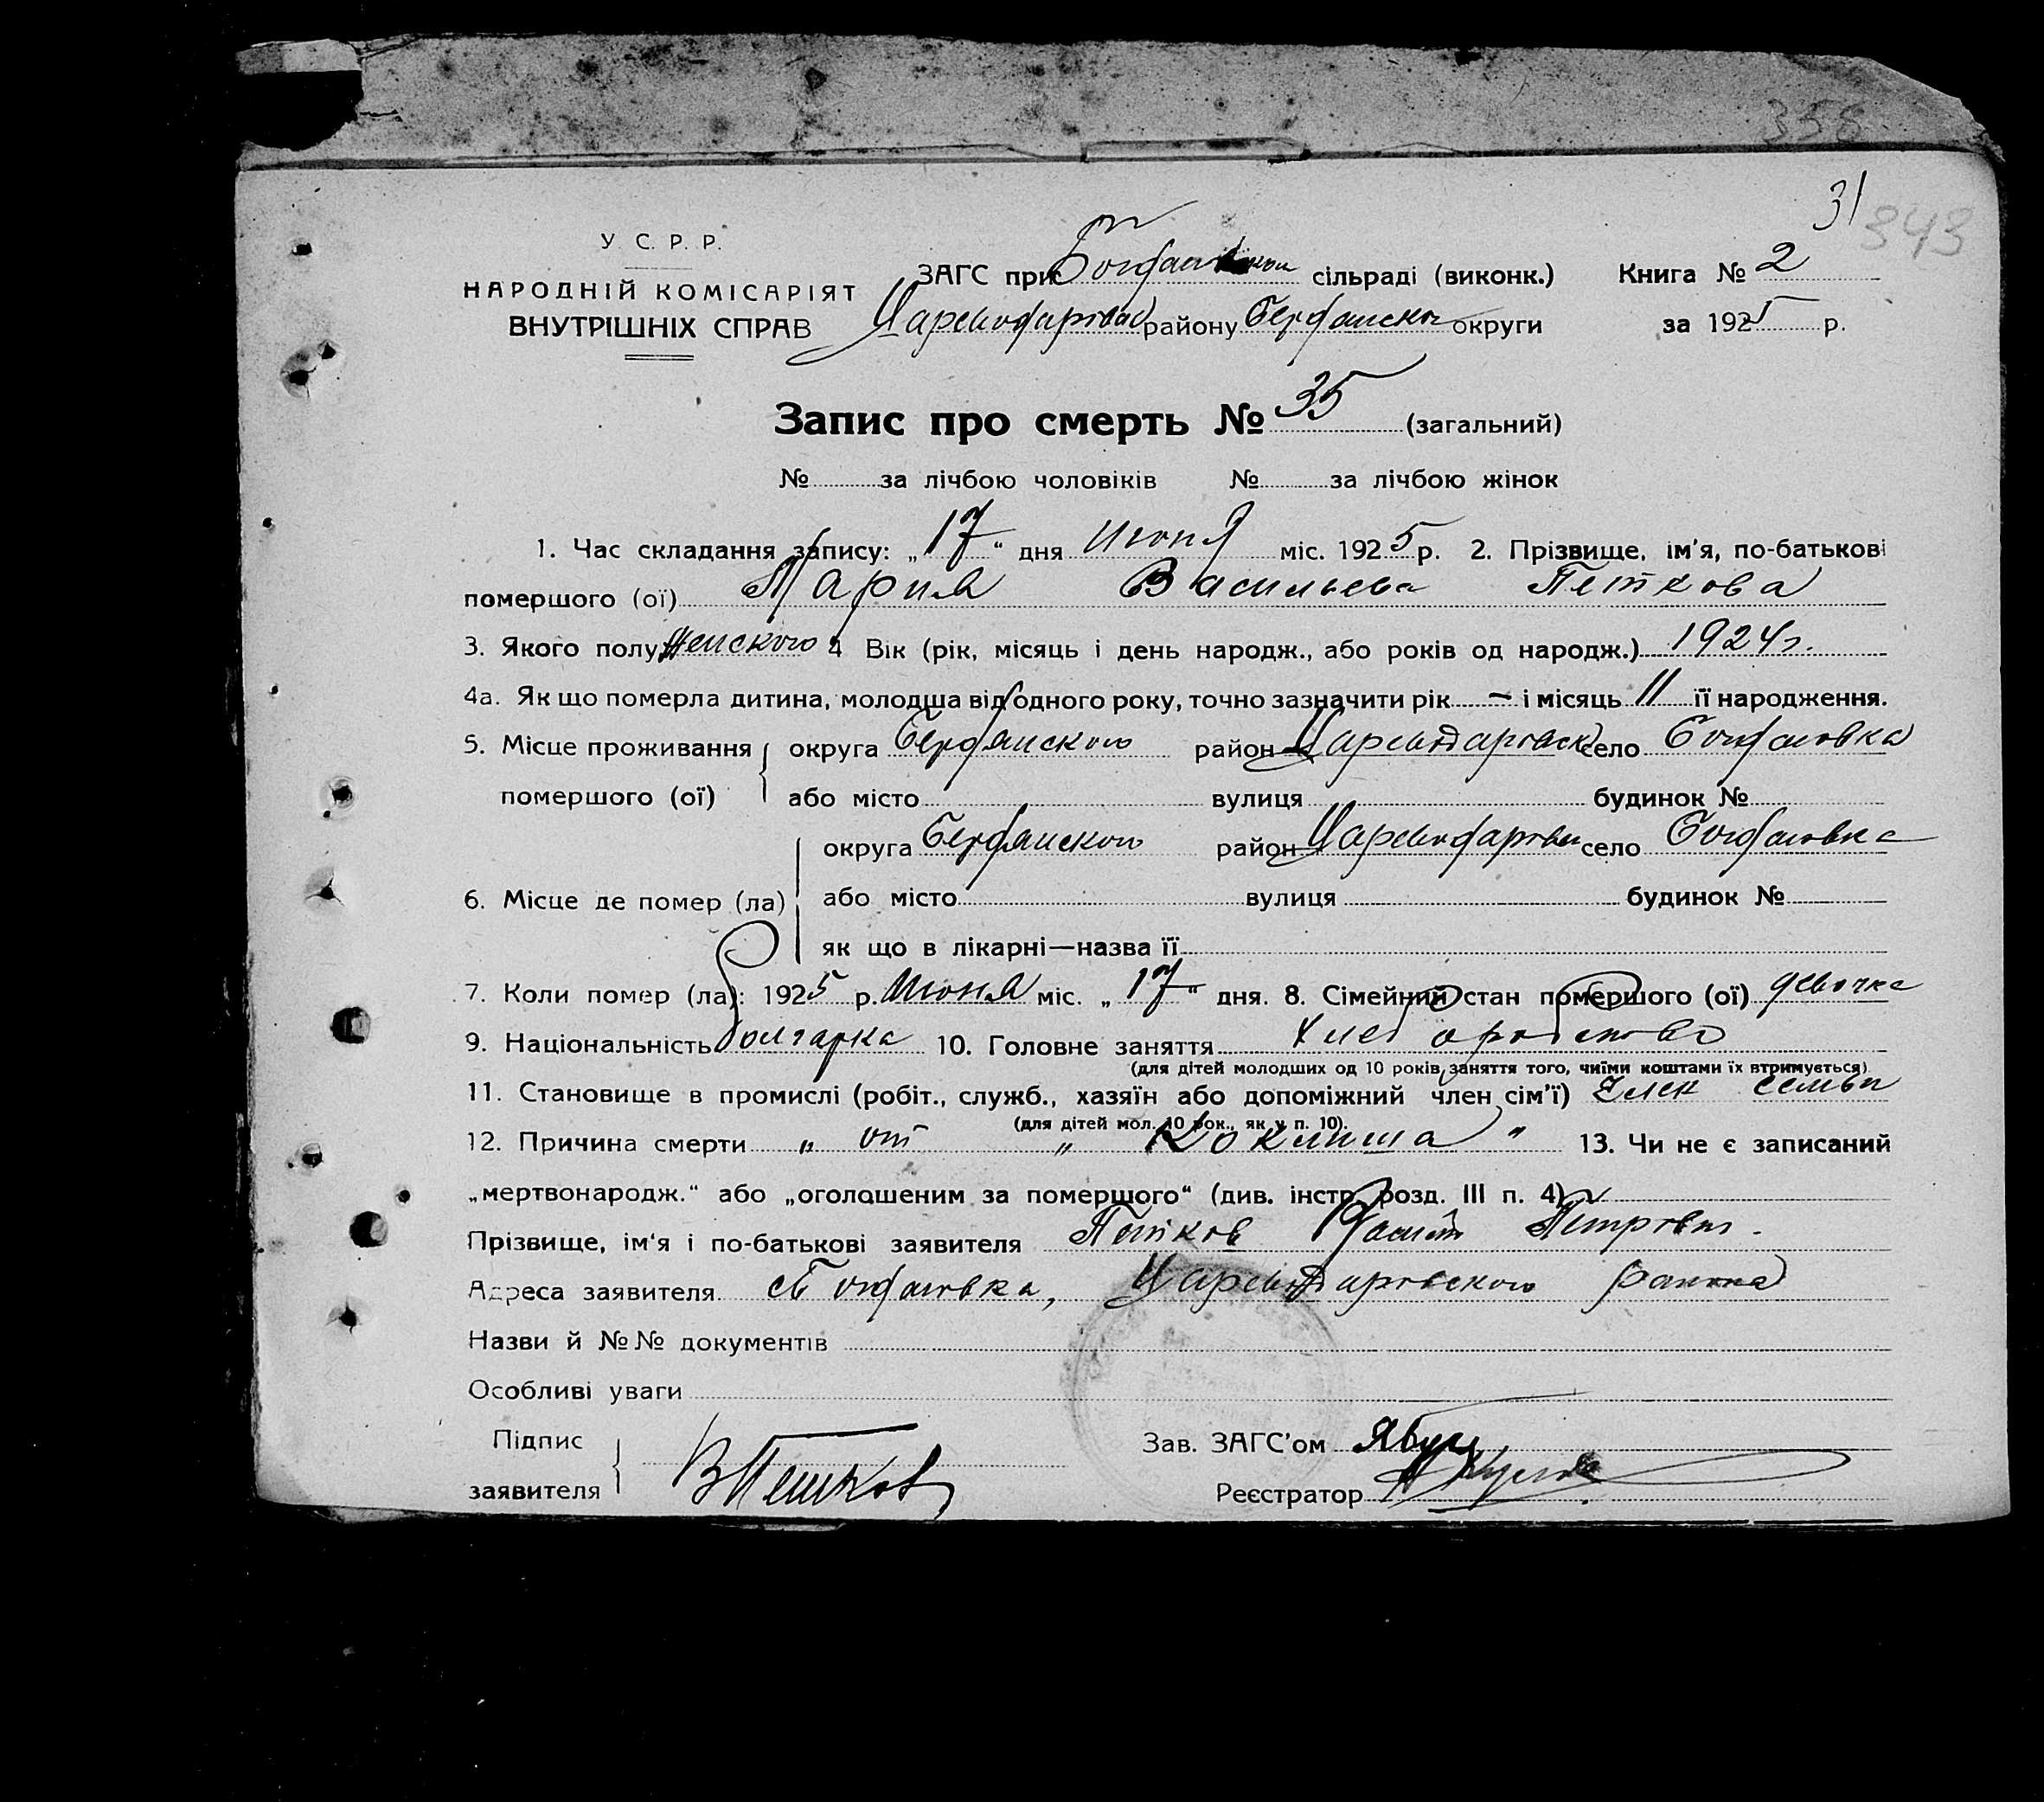 358
31
343
У. С. Р. Р.
НАРОДНІЙ КОМІСАРІЯТ
ВНУТРІШНІХ СПРАВ
ЗАГС при сільраді (виконк.) Книга № 2
району Бердянской округи за 1925 р.
Запис про смерть № 35 (загальний)
№ за лічбою чоловіків № за лічбою жінок
1. Час складання запису: „17“ дня Июня міс. 1925 р. 2. Прізвище, ім'я, по-батькові
помершого (ої) Мария Васильева Петкова
3. Якого полу Женского 4 Вік (рік, місяць і день народж., або років од народж.) 1924 г.
4а. Як що померла дитина, молодша від одного року, точно зазначити рік — і місяць 11 її народження.
5. Місце проживання округа Бердянского район село Богдановка
помершого (ої) або місто вулиця будинок №
округа Бердянского район село Богдановка
6. Місце де помер (ла) або місто вулиця будинок №
як що в лікарні—назва її
7. Коли помер (ла): 1925 р. Июня міс. „17“ дня. 8. Сімейний стан помершого (ої) девочка
9. Національність болгарка 10. Головне заняття
(для дітей молодших од 10 років, заняття того, чиїми коштами їх втримується)
11. Становище в промислі (робіт., служб., хазяїн або допоміжний член сім'ї) Член семьи
(для дітей мол. 10 рок., як у п. 10).
12. Причина смерти „ от „ Коклюша " 13. Чи не є записаний
„мертвонародж.“ або „оголошеним за помершого“ (див. інстр. розд. III п. 4)
Прізвище, ім'я і по-батькові заявителя Петков Петрович.
Адреса заявителя с Богдановка, района
Назви й №№ документів
Особливі уваги
Підпис Зав. ЗАГС'ом
заявителя ВПетков Реєстратор